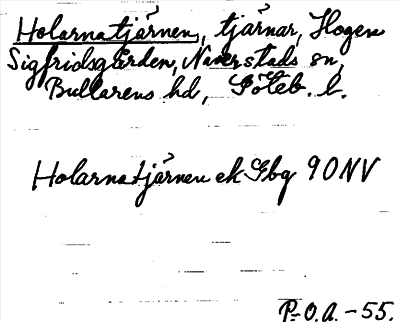 Holarnatjärnen, tjärnar, Hogen
Sigfridsgården, Naverstads sn,
Bullarens hd, Göteb. l.
Holarnatjärnen ek Gbg 90NV
P-O.A.-55.